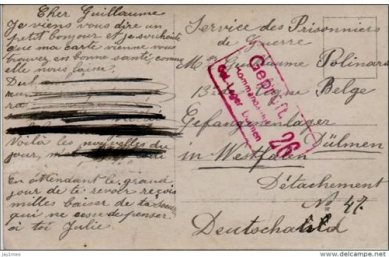 Cher Guillaume
Je viens vous dire un
petit bonjour et je souhaite
que ma carte vienne vous
trouver en bonne santé, comme
elle nous laisse.
Voilà les nouvelles du
jour,
En attendant le grand
jour de te revoir reçois
milles baiser de ta
qui ne cesse de penser
à toi Julie.
Service des Prisonniers
de Guerre
Mr Guillaume Polinard
Belge
Gefangenenlager
Dülmen
in Westfalen
Détachement
No 47
Deutschland
Geprüft
26